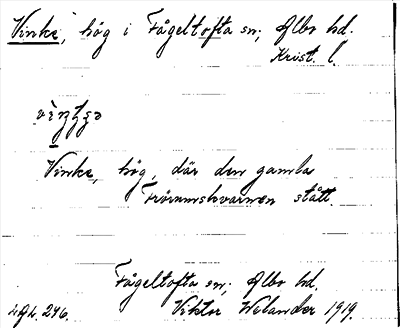 Vinke, hög i Fågeltofta sn; Albo hd.
Krist. l.
Vinke, hög, där den gamla
stått.
Fågeltofta sn; Albo hd.
Viktor Welander 1919.